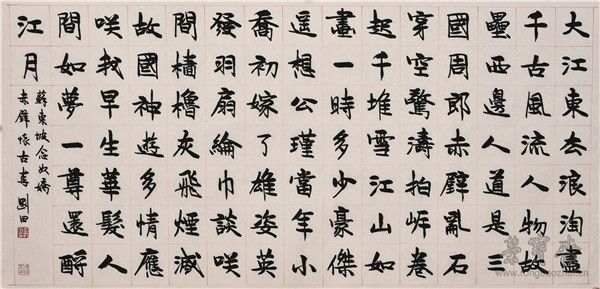 大江東去浪淘盡
千古風流人物故
壘西邊人道是三
國周郎赤壁亂石
穿空驚濤拍岸卷
起千堆雪江山如
畫一時多少豪傑
遥想公瑾當年小
喬初嫁了雄姿英
發羽扇綸巾談咲
間檣櫓灰飛煙滅
故國神遊多情應
咲我早生華髮人
間如夢一尊還酹
江月
蘇東坡念奴嬌
赤壁懷古 劉田